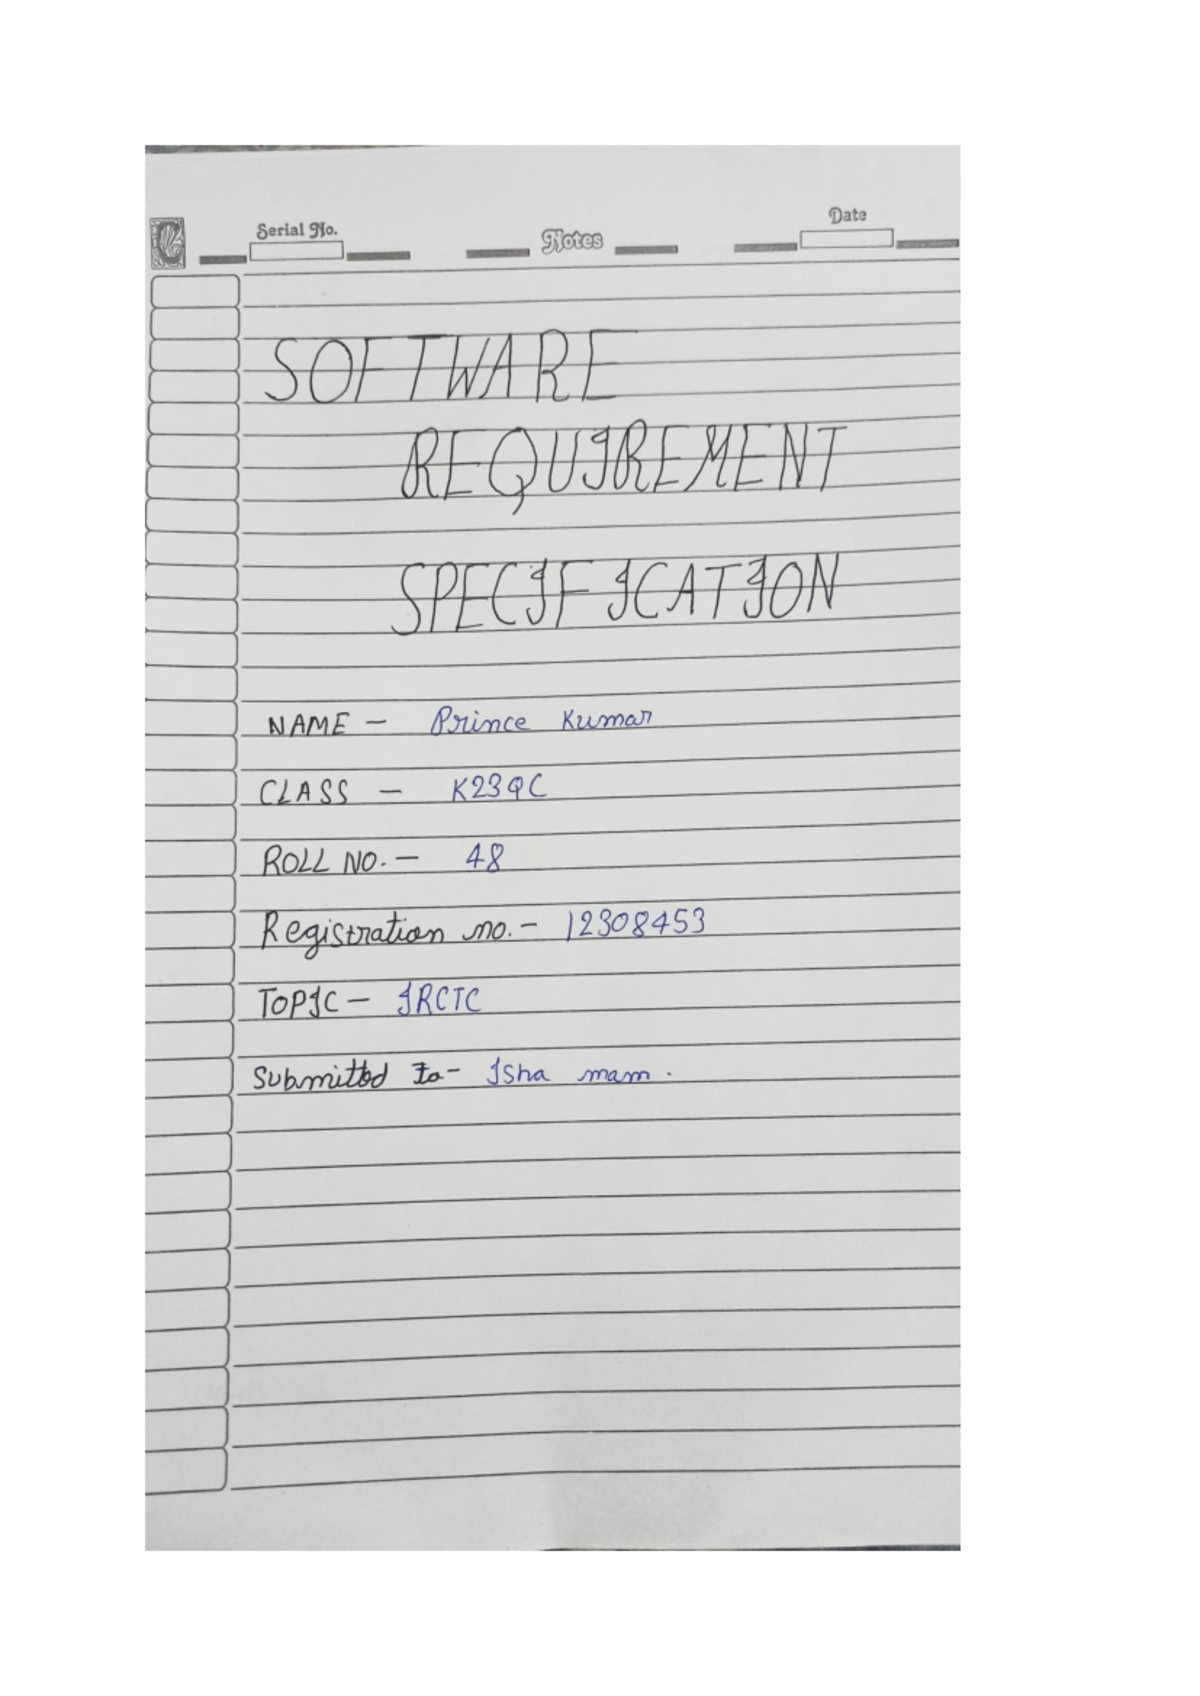 Serial No.
Notes
Date
SOFTWARE
REQUIREMENT
SPECIFICATION
NAME - Prince Kumar
CLASS - K23QC
ROLL NO. - 48
Registration no. - 12308453
TOPIC - IRCTC
Submitted to - Isha mam.